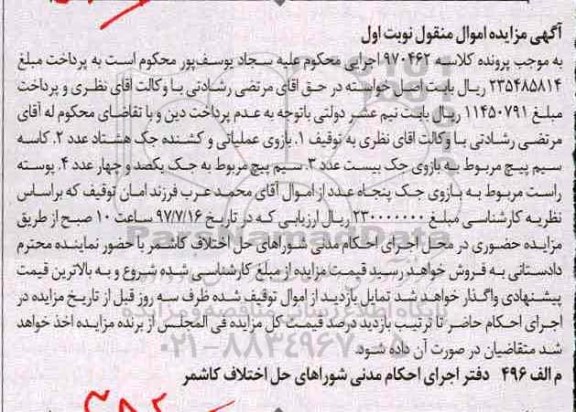 آگهی مزایده اموال منقول نوبت اول
به موجب پرونده کلاسه ۹۷۰۴۶۲ اجرایی محکوم علیه سجاد یوسف‌پور محکوم است به پرداخت مبلغ
۲۳۵۴۸۵۸۱۴ ریال بابت اصل خواسته در حق اقای مرتضی رشادتی با وکالت اقای نظری و پرداخت
مبلغ ۱۱۴۵۰۷۹۱ ریال بابت نیم عشر دولتی باتوجه به عدم پرداخت دین و با تقاضای محکوم له آقای
مرتضی رشادتی با وکالت اقای نظری به توقیف ۱. بازوی عملیاتی و کشنده جک هشتاد عدد ۲. کاسه
سیم پیچ مربوط به بازوی جک بیست عدد ۳. سیم پیچ مربوط به جک یکصد و چهار عدد ۴. پوسته
راست مربوط به بازوی جک پنجاه عدد از اموال آقای محمد عرب فرزند امان توقیف که براساس
نظریه کارشناسی مبلغ ۲۳۰۰۰۰۰۰۰ ریال ارزیابی که در تاریخ ۹۷/۷/۱۶ ساعت ۱۰ صبح از طریق
مزایده حضوری در محل اجرای احکام مدنی شوراهای حل اختلاف کاشمر با حضور نماینده محترم
دادستانی به فروش خواهد رسید قیمت مزایده از مبلغ کارشناسی شده شروع و به بالاترین قیمت
پیشنهادی واگذار خواهد شد تمایل بازدید از اموال توقیف شده ظرف سه روز قبل از تاریخ مزایده در
اجرای احکام حاضر تا ترتیب بازدید درصد قیمت کل مزایده فی المجلس از برنده مزایده اخذ خواهد
شد متقاضیان در صورت آن داده شود.
م الف ۴۹۶ دفتر اجرای احکام مدنی شوراهای حل اختلاف کاشمر
ParsNamadData
پایگاه اطلاع رسانی مناقصه و مزایده
۰۲۱-۸۸۳۴۹۶۷۰-۵